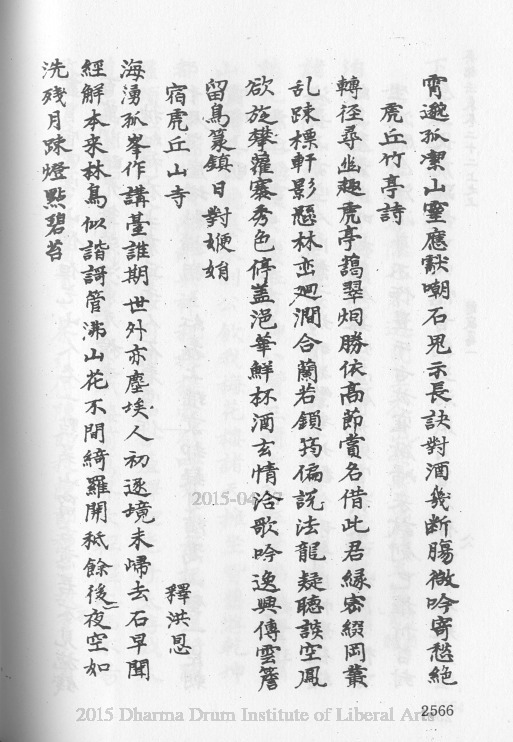 霄邈孤潔山靈應獻嘲石鬼示長訣對酒幾断膓微吟寄愁絕
虎丘竹亭詩
轉徑尋幽趣虎亭藹翠烱勝依高節賞名借此君縁密綴岡叢
乱踈標軒影懸林峦廻澗合蘭若鎖筠偏説法龍疑聽談空鳳
欲旋攀蘿褰秀色停盖浥華鮮杯酒玄情洽歌吟逸興傳雲簷
留鳥篆鎮日對㛹娟
宿虎丘山寺
釋洪恩
海湧孤峯作講䑓誰期世外亦塵埃人初逐境未歸去石早聞
經解本来林鳥似諧謌管沸山花不間綺羅開秪餘後二夜空如
洗殘月踈燈點碧苔
2015-04-
2566
2015 Dharma Drum Institute of Liberal Arts